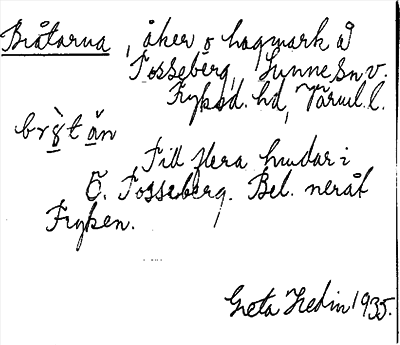 Bråtarna, åker o hagmark å
Fosseberg, Sunne sn v.
Fryksd. hd, Värml. l.
br`ɣt än
Till flera hundar i
Ö. Fosseberg. Bel. neråt
Fryken.
Greta Hedin 1935.